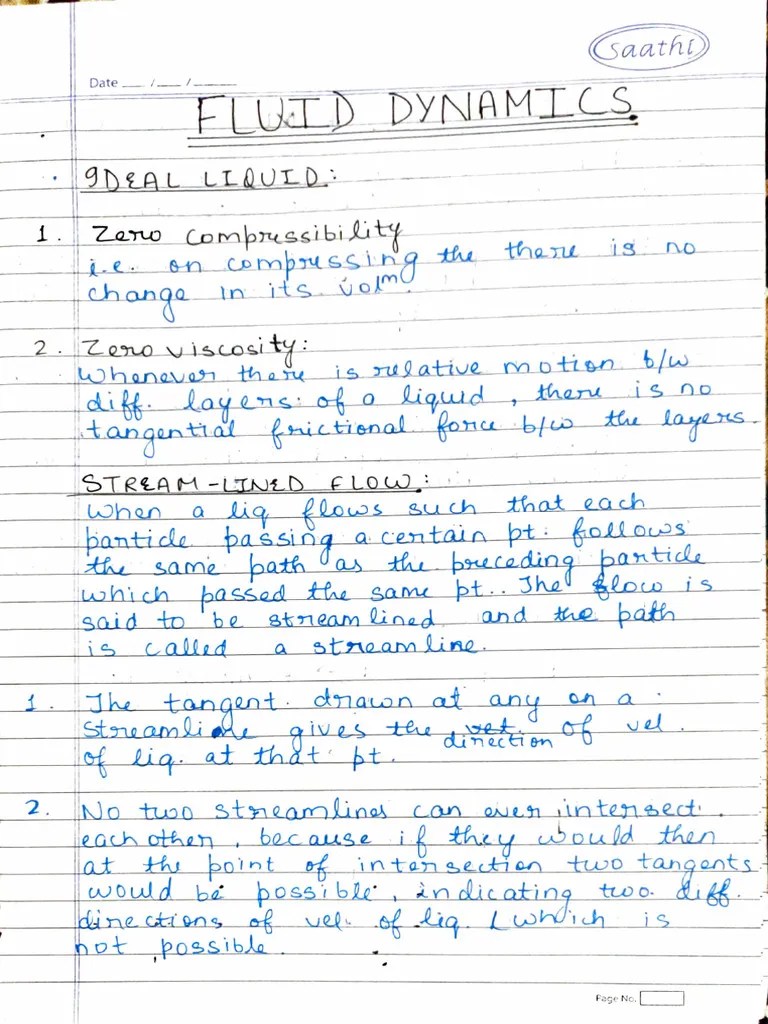 saathi
Date ___ /___ /______
FLUID DYNAMICS
IDEAL LIQUID:
1. Zero compressibility
i.e. on compressing the there is no
change in its volm
2. Zero viscosity:
Whenever there is relative motion b/w
diff. layers of a liquid, there is no
tangential frictional force b/w the layers.
STREAM-LINED FLOW:
When a liq flows such that each
particle passing a certain pt. follows
the same path as the preceding particle
which passed the same pt.. The flow is
said to be streamlined and the path
is called a streamline.
1. The tangent drawn at any on a
streamline gives the direction of vel.
of liq. at that pt.
2. No two streamlines can ever intersect
each other, because if they would then
at the point of intersection two tangents
would be possible, indicating two diff.
directions of vel. of liq. (which is
not possible.
Page No.